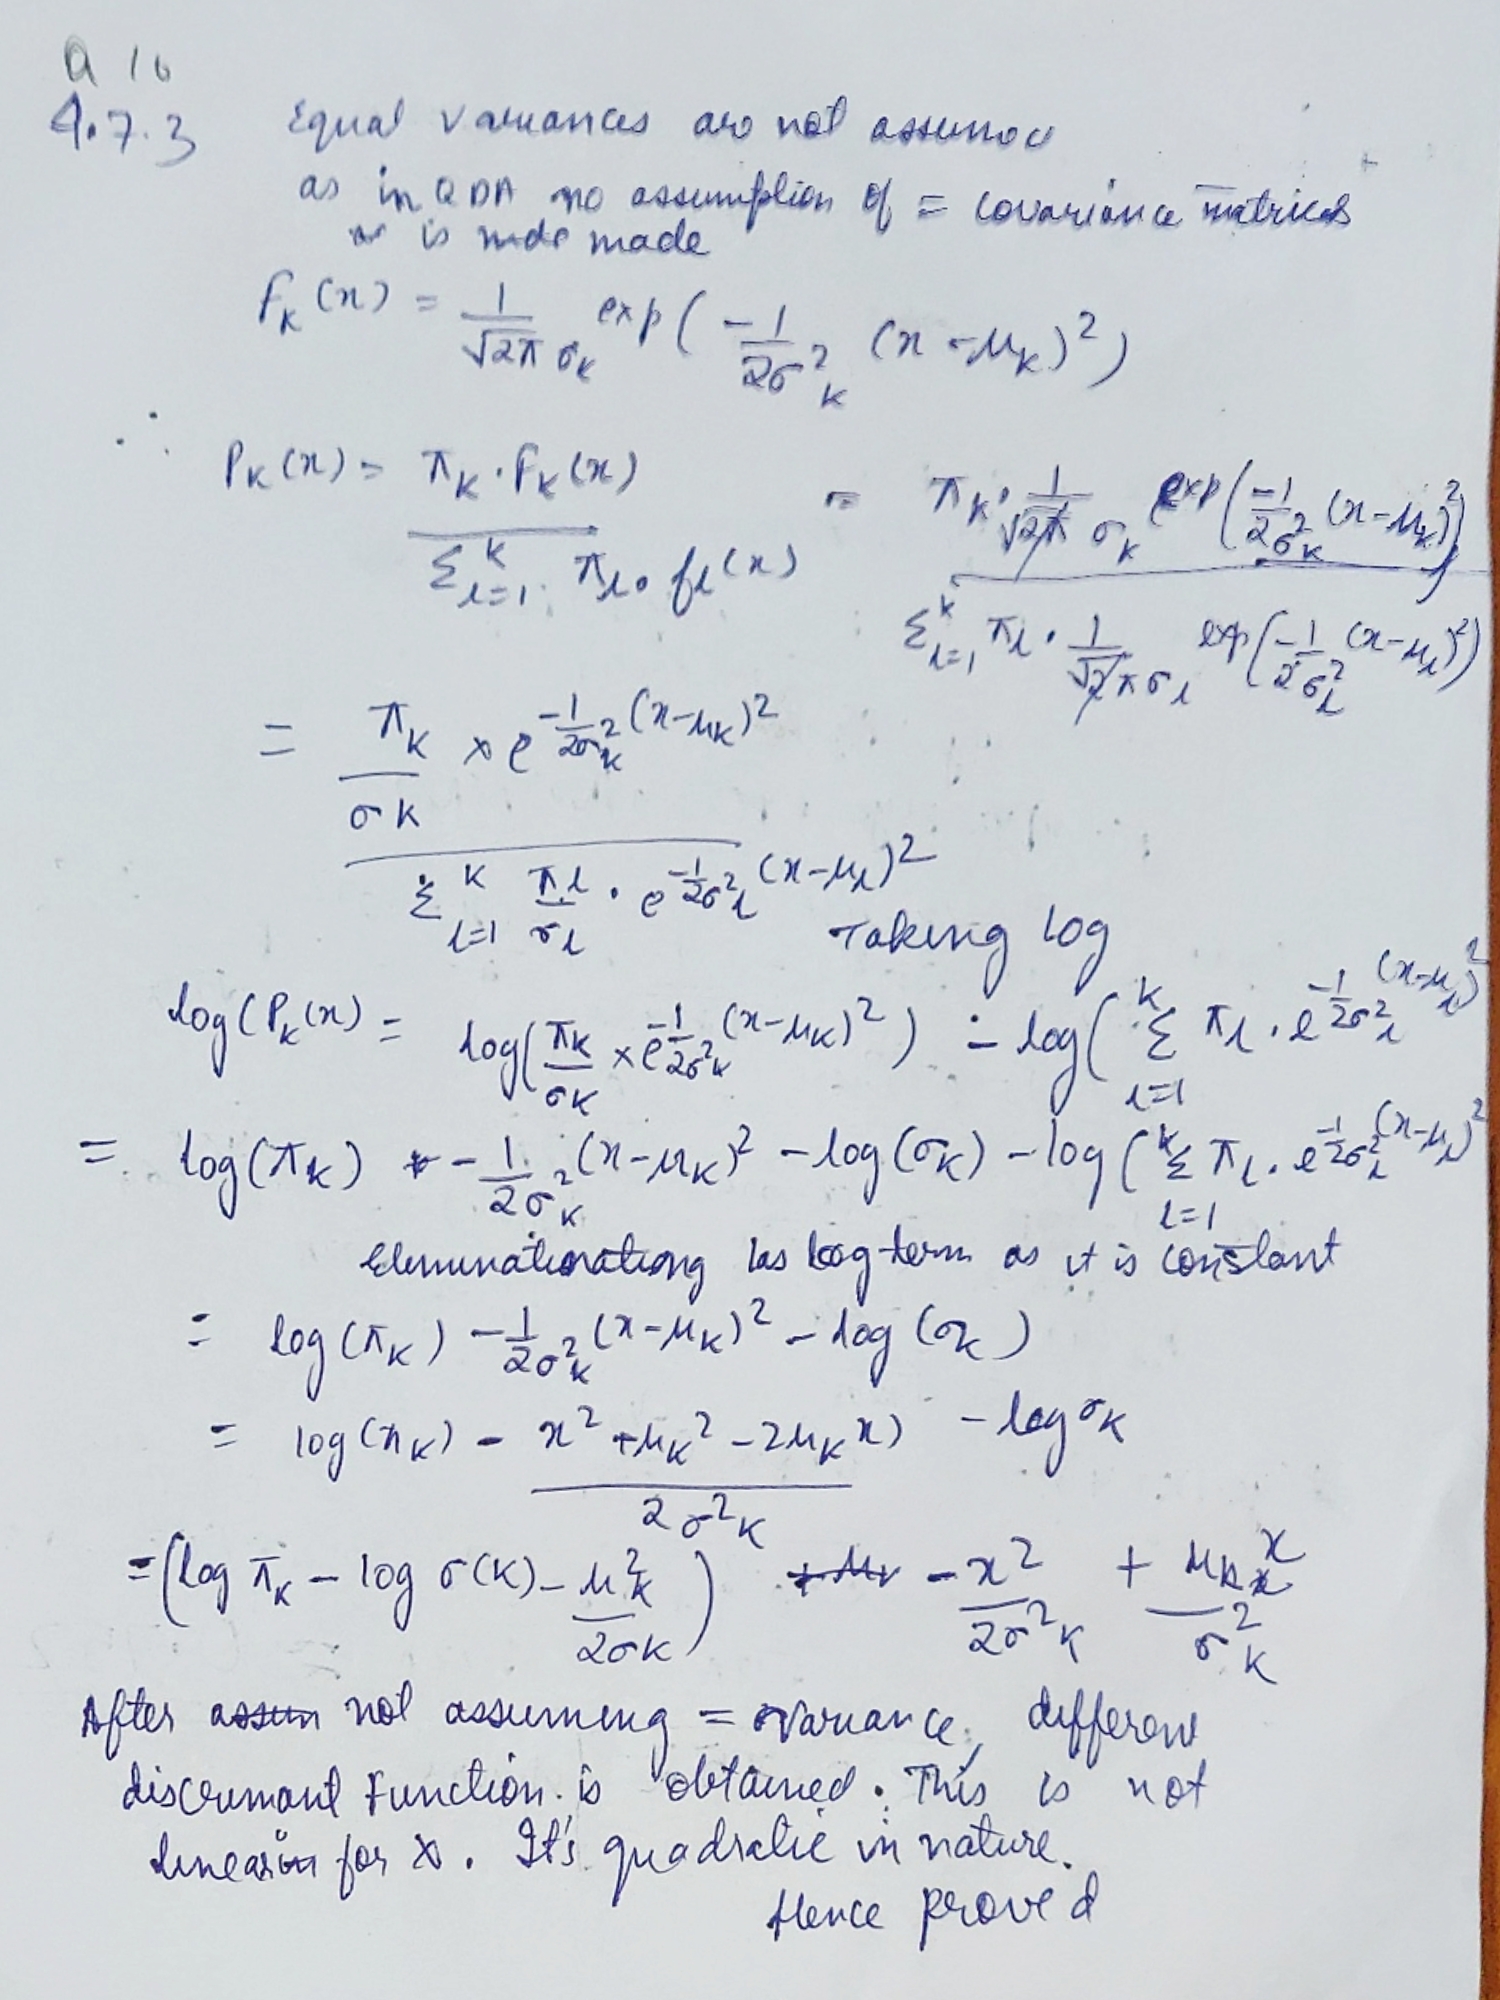 Q 16
4.7.3 Equal variances are not assumed
as in QDA no assumption of = covariance matrices
is made
f_K(x) = 1/(√2π σ_K) exp(-1/(2σ²_K) (x-μ_K)²)
∴
P_K(x) = π_K·f_K(x) / Σ_{l=1}^K π_l·f_l(x) = π_K·1/(√2π σ_K) exp(-1/(2σ²_K) (x-μ_K)²) / Σ_{l=1}^K π_l·1/(√2π σ_l) exp(-1/(2σ²_l) (x-μ_l)²)
= π_K/σ_K × e^{-1/(2σ²_K) (x-μ_K)²} / Σ_{l=1}^K π_l/σ_l · e^{-1/(2σ²_l) (x-μ_l)²}
Taking log
log(P_K(x) = log(π_K/σ_K × e^{-1/(2σ²_K) (x-μ_K)²}) - log(Σ_{l=1}^K π_l · e^{-1/(2σ²_l) (x-μ_l)²}
= log(π_K) - 1/(2σ²_K) (x-μ_K)² - log(σ_K) - log(Σ_{l=1}^K π_l · e^{-1/(2σ²_l) (x-μ_l)²}
las log term as it is constant
= log(π_K) - 1/(2σ²_K) (x-μ_K)² - log(σ_K)
= log(π_K) - x² + μ_K² - 2μ_K x) / 2σ²_K - log σ_K
= (log π_K - log σ(K) - μ²_K/2σ_K) - x²/2σ²_K + μ_K x/σ²_K
After not assuming = variance, different
discrimant Function is obtained. This is not
linear for x. It's quadratic in nature.
Hence proved